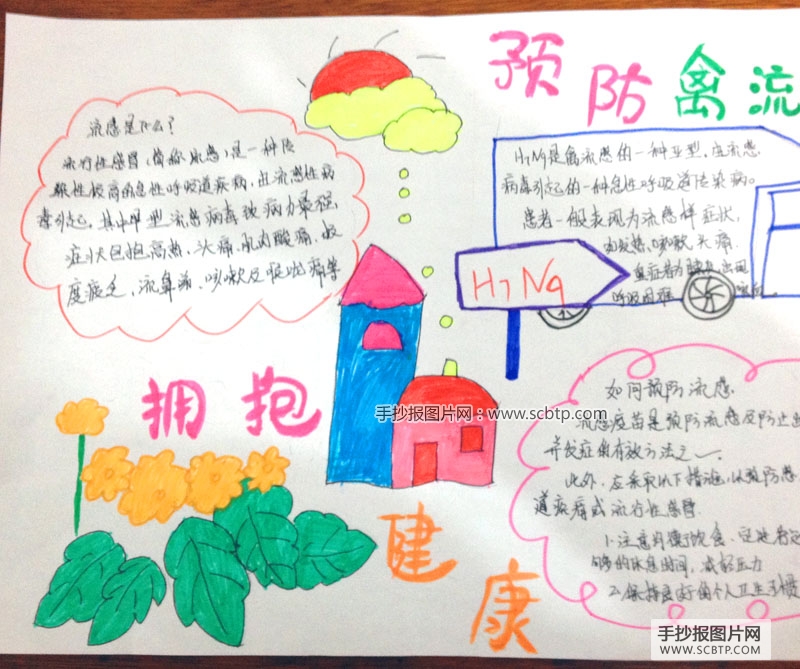 预防禽流
流感是什么?
流行性感冒,简称流感,是一种传
染性极高的急性呼吸道疾病,由流感性病
毒引起。其中甲型流感病毒致病力最强,
症状包括高热、头痛、肌肉酸痛、极
度疲乏、流鼻涕、咳嗽及喉咙痛等
H7N9是禽流感的一种亚型,
病毒引起的一种急性呼吸道传染病。
患者一般表现为流感样症状,
如发热,咳嗽,头痛
重症者
呼吸困难
H7N9
拥抱
健康
如何预防流感.
流感疫苗是预防流感及防止
并发症的有效方法之一.
此外,应采取以下措施,以预防
道疾病或流行性感冒
1.注意均衡饮食,
够的休息时间,减轻压力
2.保持良好的个人卫生习惯
手抄报图片网:www.scbtp.com
手抄报图片网
WWW.SCBTP.COM